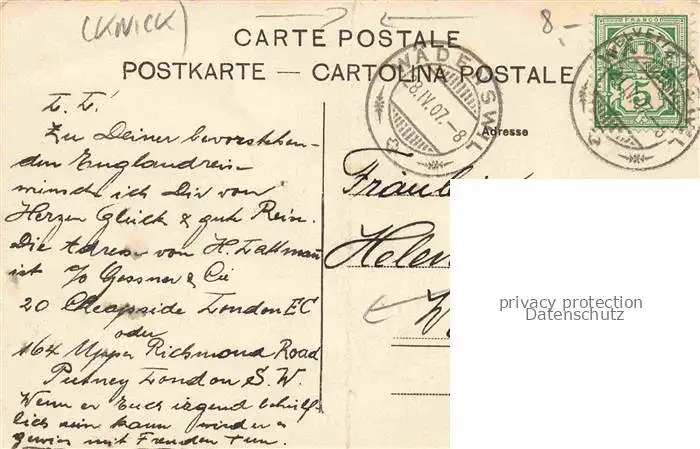 (KNICK)
8-
CARTE POSTALE
POSTKARTE — CARTOLINA POSTALE
FRANCO
HELVETIA
5
WÄDENSWIL
28.IV.07.-8
Adresse
L. L!
Zu Deiner bevorstehen-
den Englandreise
wünsche ich Dir von
Herzen Glück & gute Reise.
Die Adresse von H.
ist c/o Gessner & Cie
20 Cheapside London EC
oder
164 Upper Richmond Road
Putney London S. W.
Wenn er Euch irgend behülf-
lich sein kann wird er es
gewiss mit Freuden tun.
Fräulein
Helen
W
privacy protection
Datenschutz